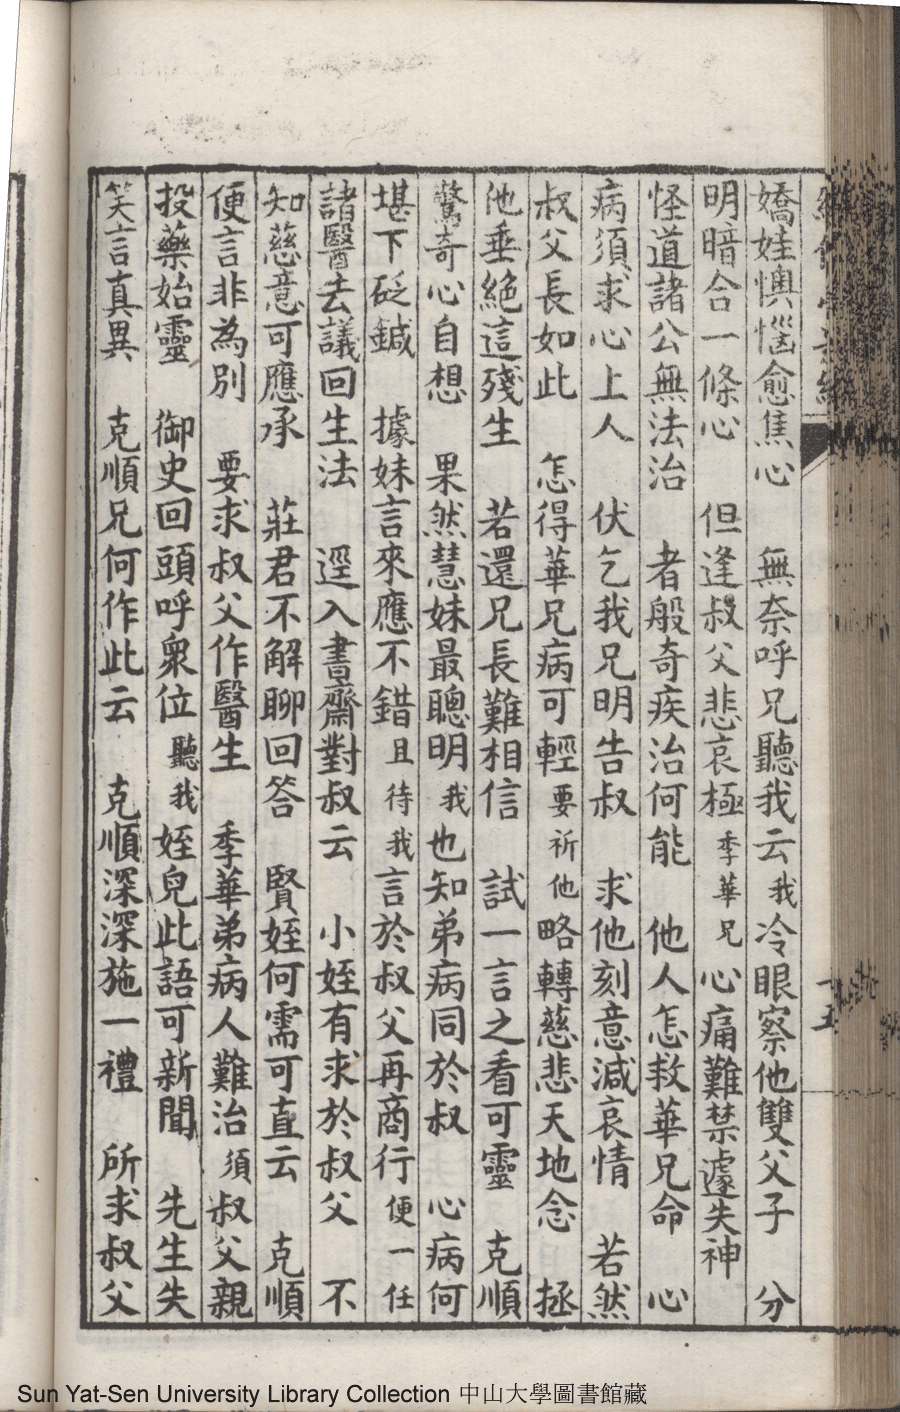 嬌娃懊惱愈焦心　無奈呼兄聽我云我冷眼察他雙父子　分
明暗合一條心　但逢叔父悲哀極季華兄心痛難禁遽失神
怪道諸公無法治　者般奇疾治何能　他人怎救華兄命　心
病須求心上人　伏乞我兄明告叔　求他刻意減哀情　若然
叔父長如此　怎得華兄病可輕要祈他略轉慈悲天地念　拯
他垂絕這殘生　若還兄長難相信　試一言之看可靈　克順
驚奇心自想　果然慧妹最聰明我也知弟病同於叔　心病何
堪下砭鍼　據妹言來應不錯且待我言於叔父再商行便一任
諸醫去議回生法　逕入書齋對叔云　小姪有求於叔父　不
知慈意可應承　莊君不解聊回答　賢姪何需可直云　克順
便言非為別　要求叔父作醫生　季華弟病人難治須叔父親
投藥始靈　御史回頭呼衆位聽我姪兒此語可新聞　先生失
笑言真異　克順兄何作此云　克順深深施一禮　所求叔父
一五
Sun Yat-Sen University Library Collection 中山大學圖書館藏